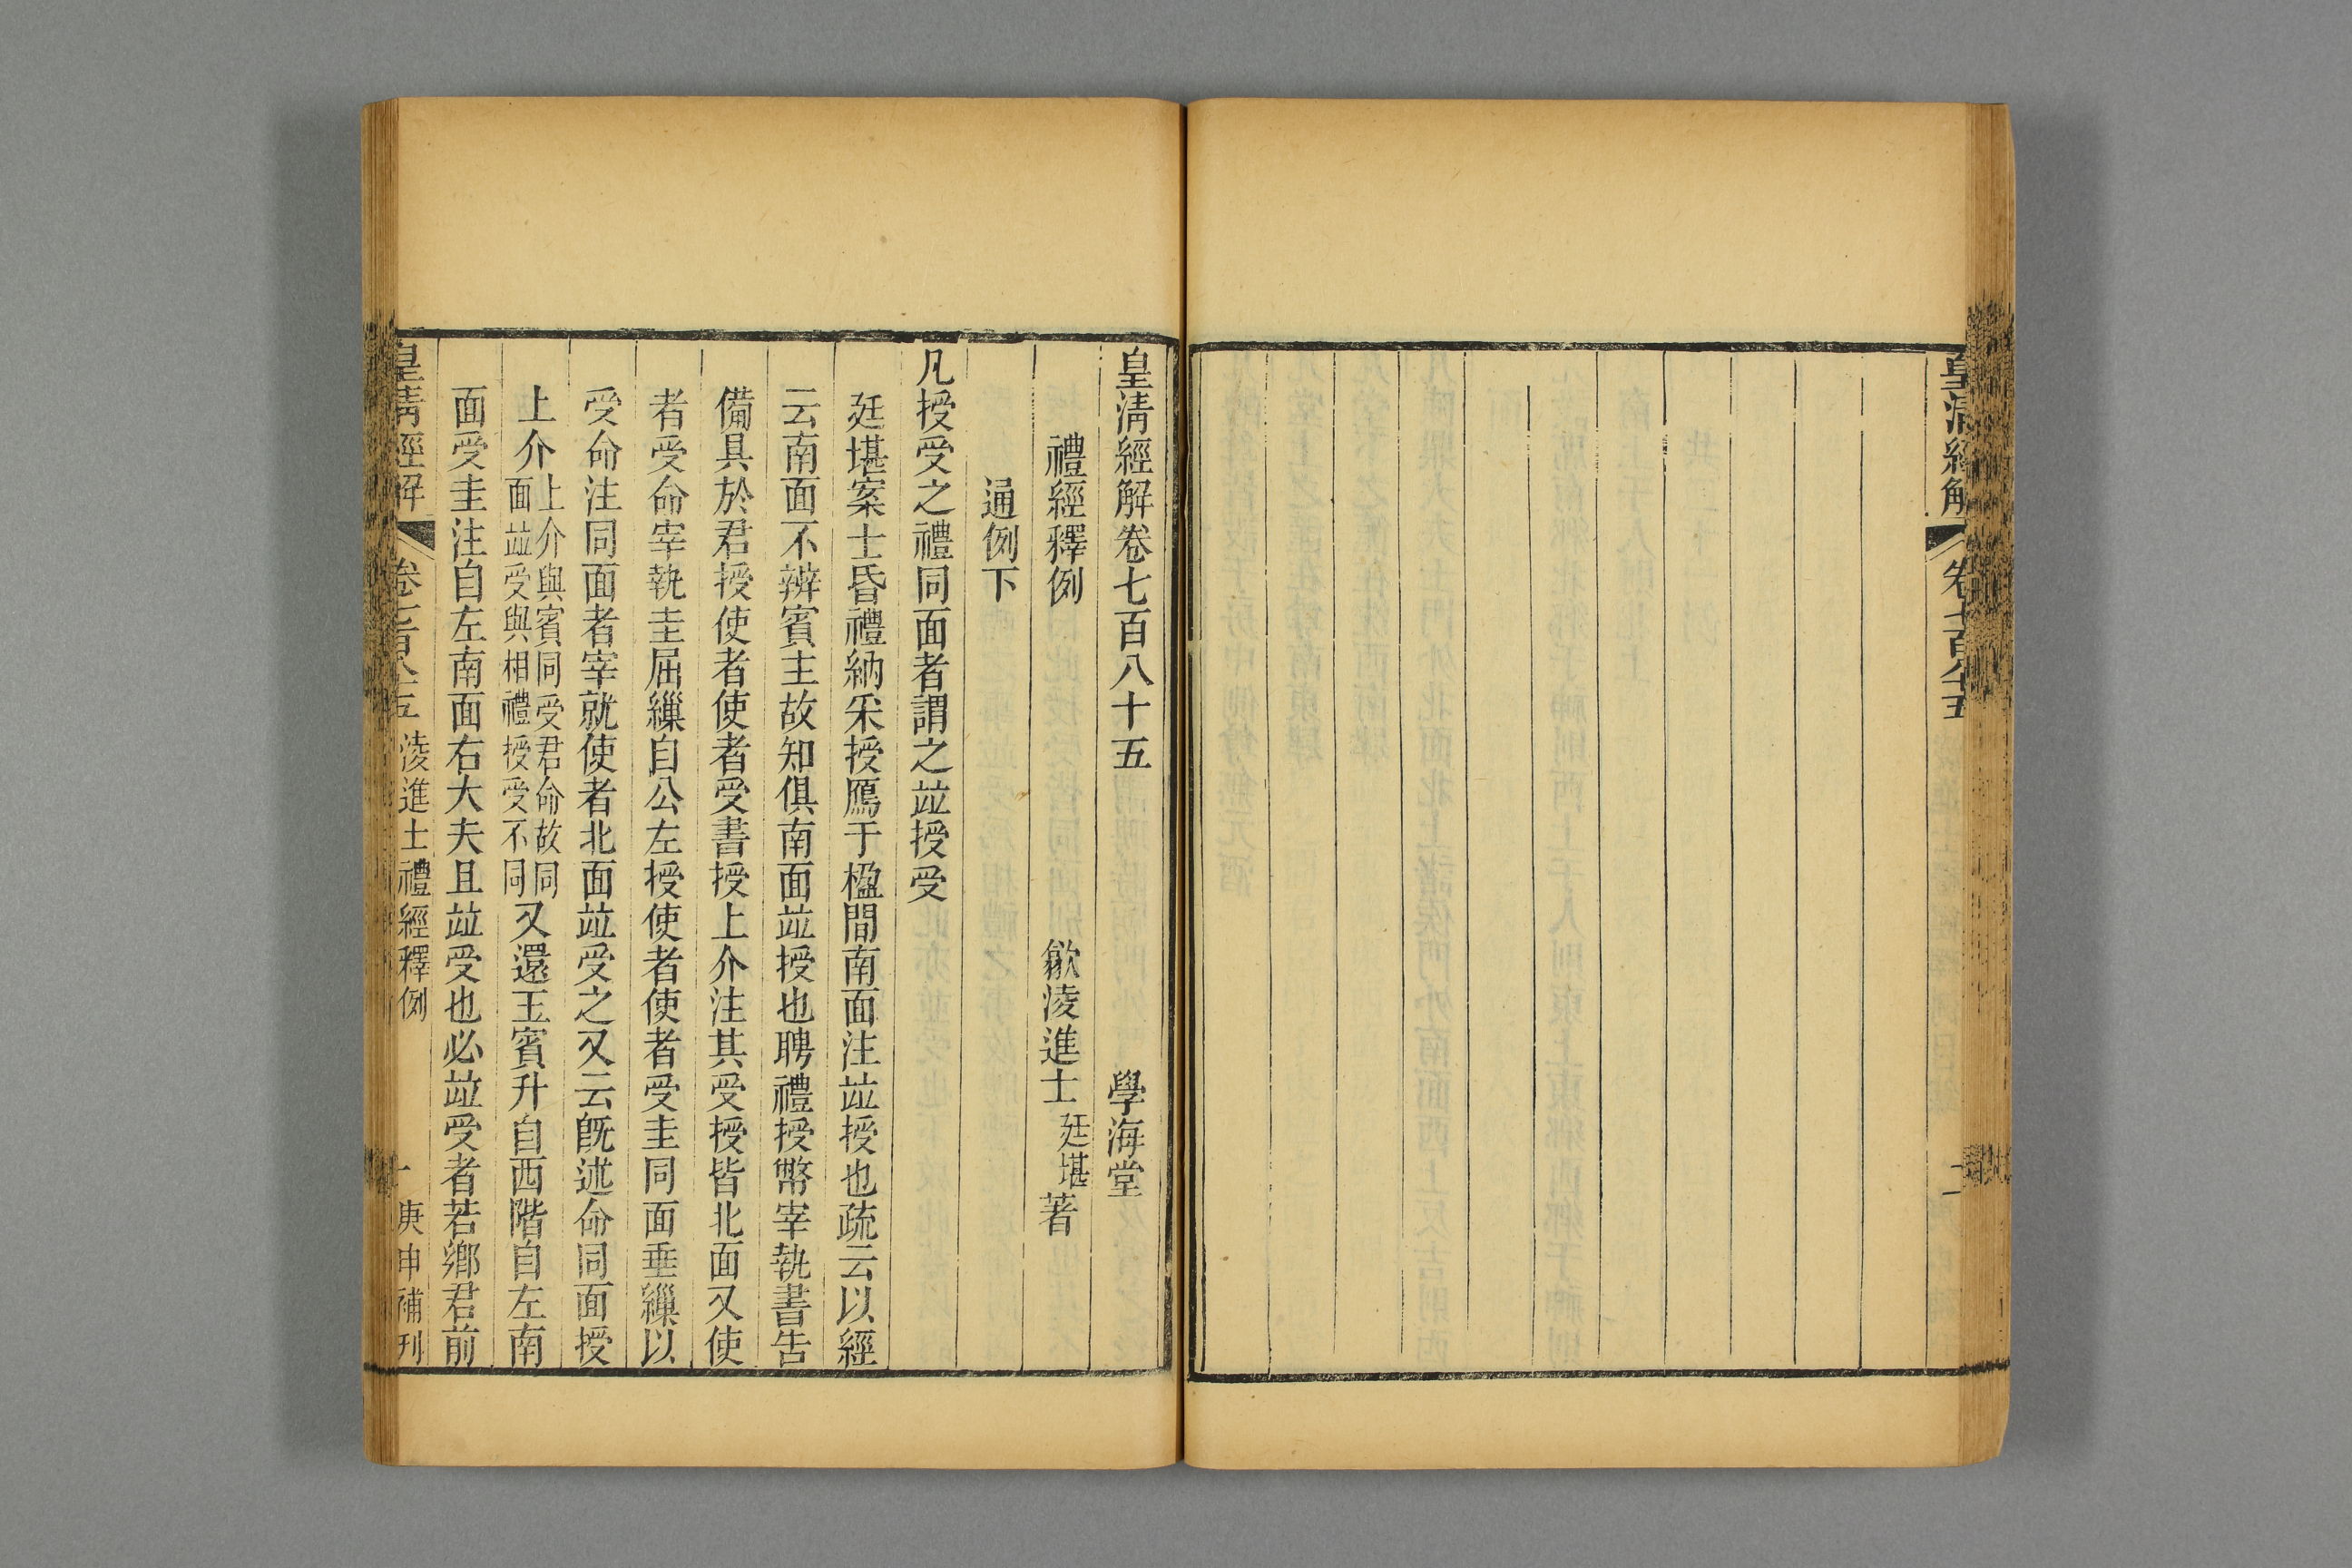 皇清經解
卷七百八十五
皇清經解卷七百八十五 學海堂
禮經釋例 歙淩進士廷堪著
通例下
凡授受之禮同面者謂之竝授受
廷堪案士昏禮納采授鴈于楹間南面注竝授也疏云以經
云南面不辨賓主故知俱南面竝授也聘禮授幣宰執書告
備具於君授使者使者受書授上介注其受授皆北面又使
者受命宰執圭屈繅自公左授使者使者受圭同面垂繅以
受命注同面者宰就使者北面竝受之又云旣述命同面授
上介上介與賓同受君命故同面竝受與相禮授受不同又還玉賓升自西階自左南
面受圭注自左南面右大夫且竝受也必竝受者若鄉君前
皇清經解 卷七百八十五 淩進士禮經釋例 一 庚申補刊